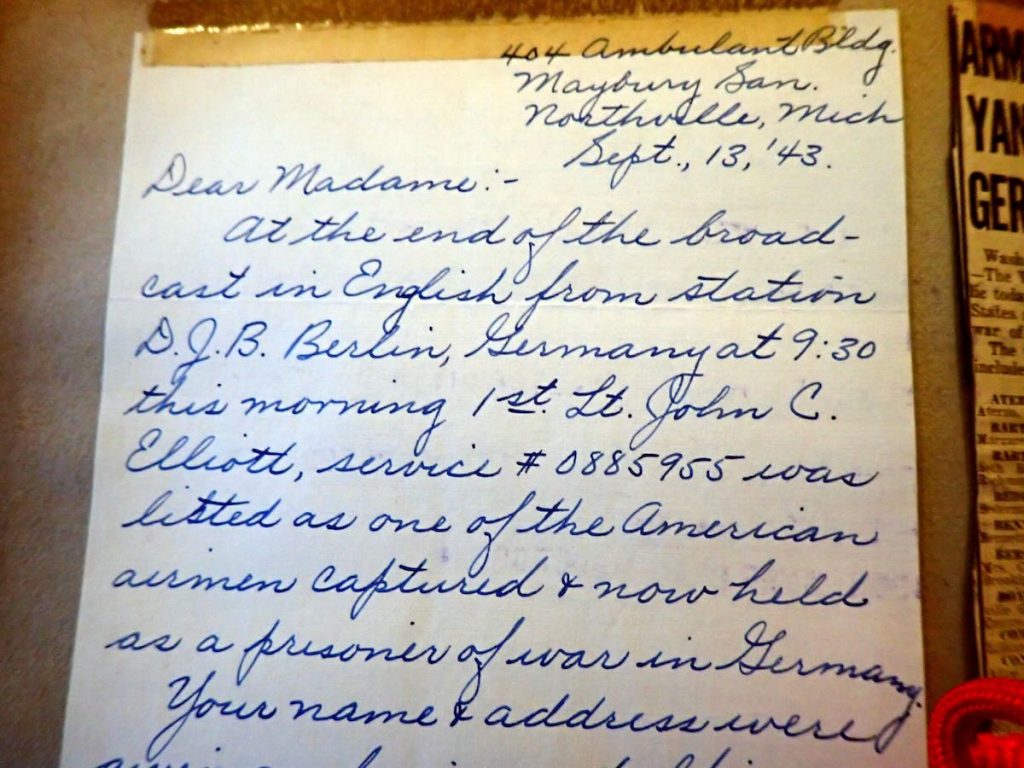 404 Ambulant Bldg.
Maybury San.
Northville, Mich
Sept., 13, '43.
Dear Madame:-
At the end of the broad-
cast in English from station
D.J.B. Berlin, Germany at 9:30
this morning 1st. Lt. John C.
Elliott, service # 0885955 was
listed as one of the American
airmen captured & now held
as a prisoner of war in Germany.
Your name & address were
ARM
YAN
GER
Wash
—The W
States
war of
The
include